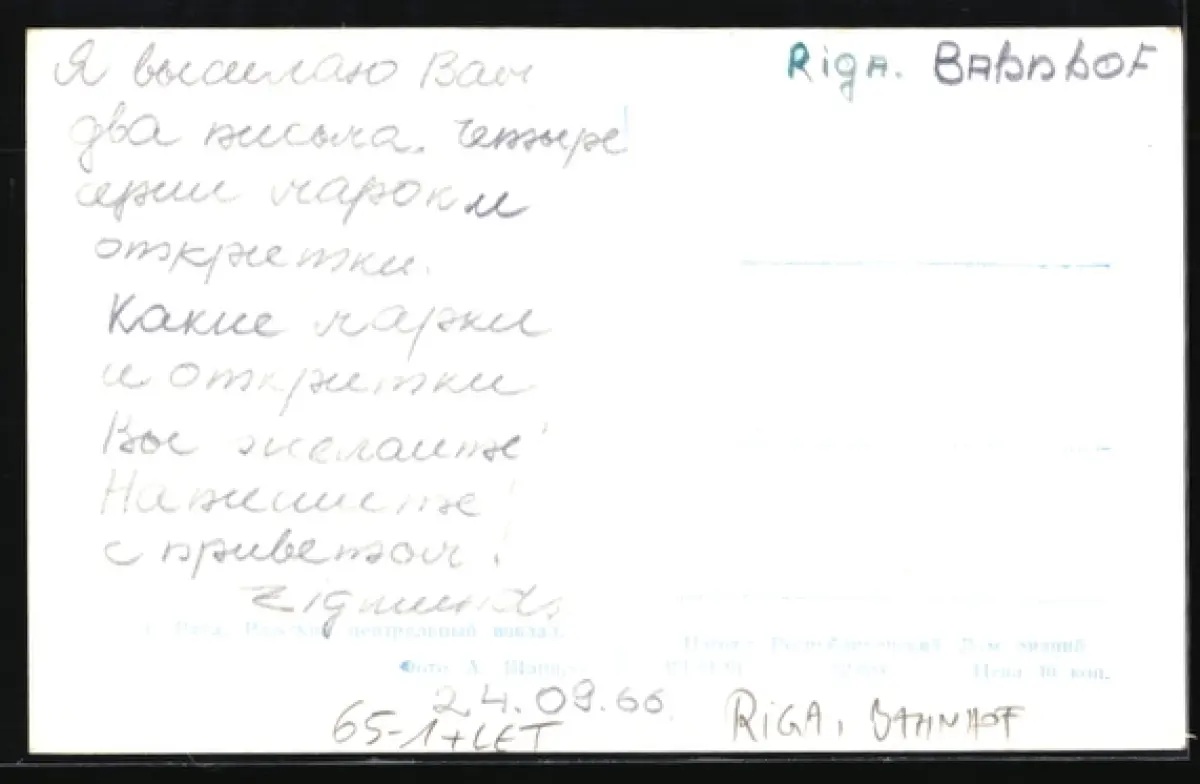 Я высилаю Вам
два письма. Четыре
серии марок и
откритки.
Какие марки
и откритки
Вы желаите
Напишите!
с приветом!
Zigmunds
Riga. BAhnhOF
г. Рига. Рижский центральный вокзал.
Республиканский Дом знаний
Фото А.
Цена 10 коп.
24.09.66.
65-1+LET
RiGA, BAHNHOF